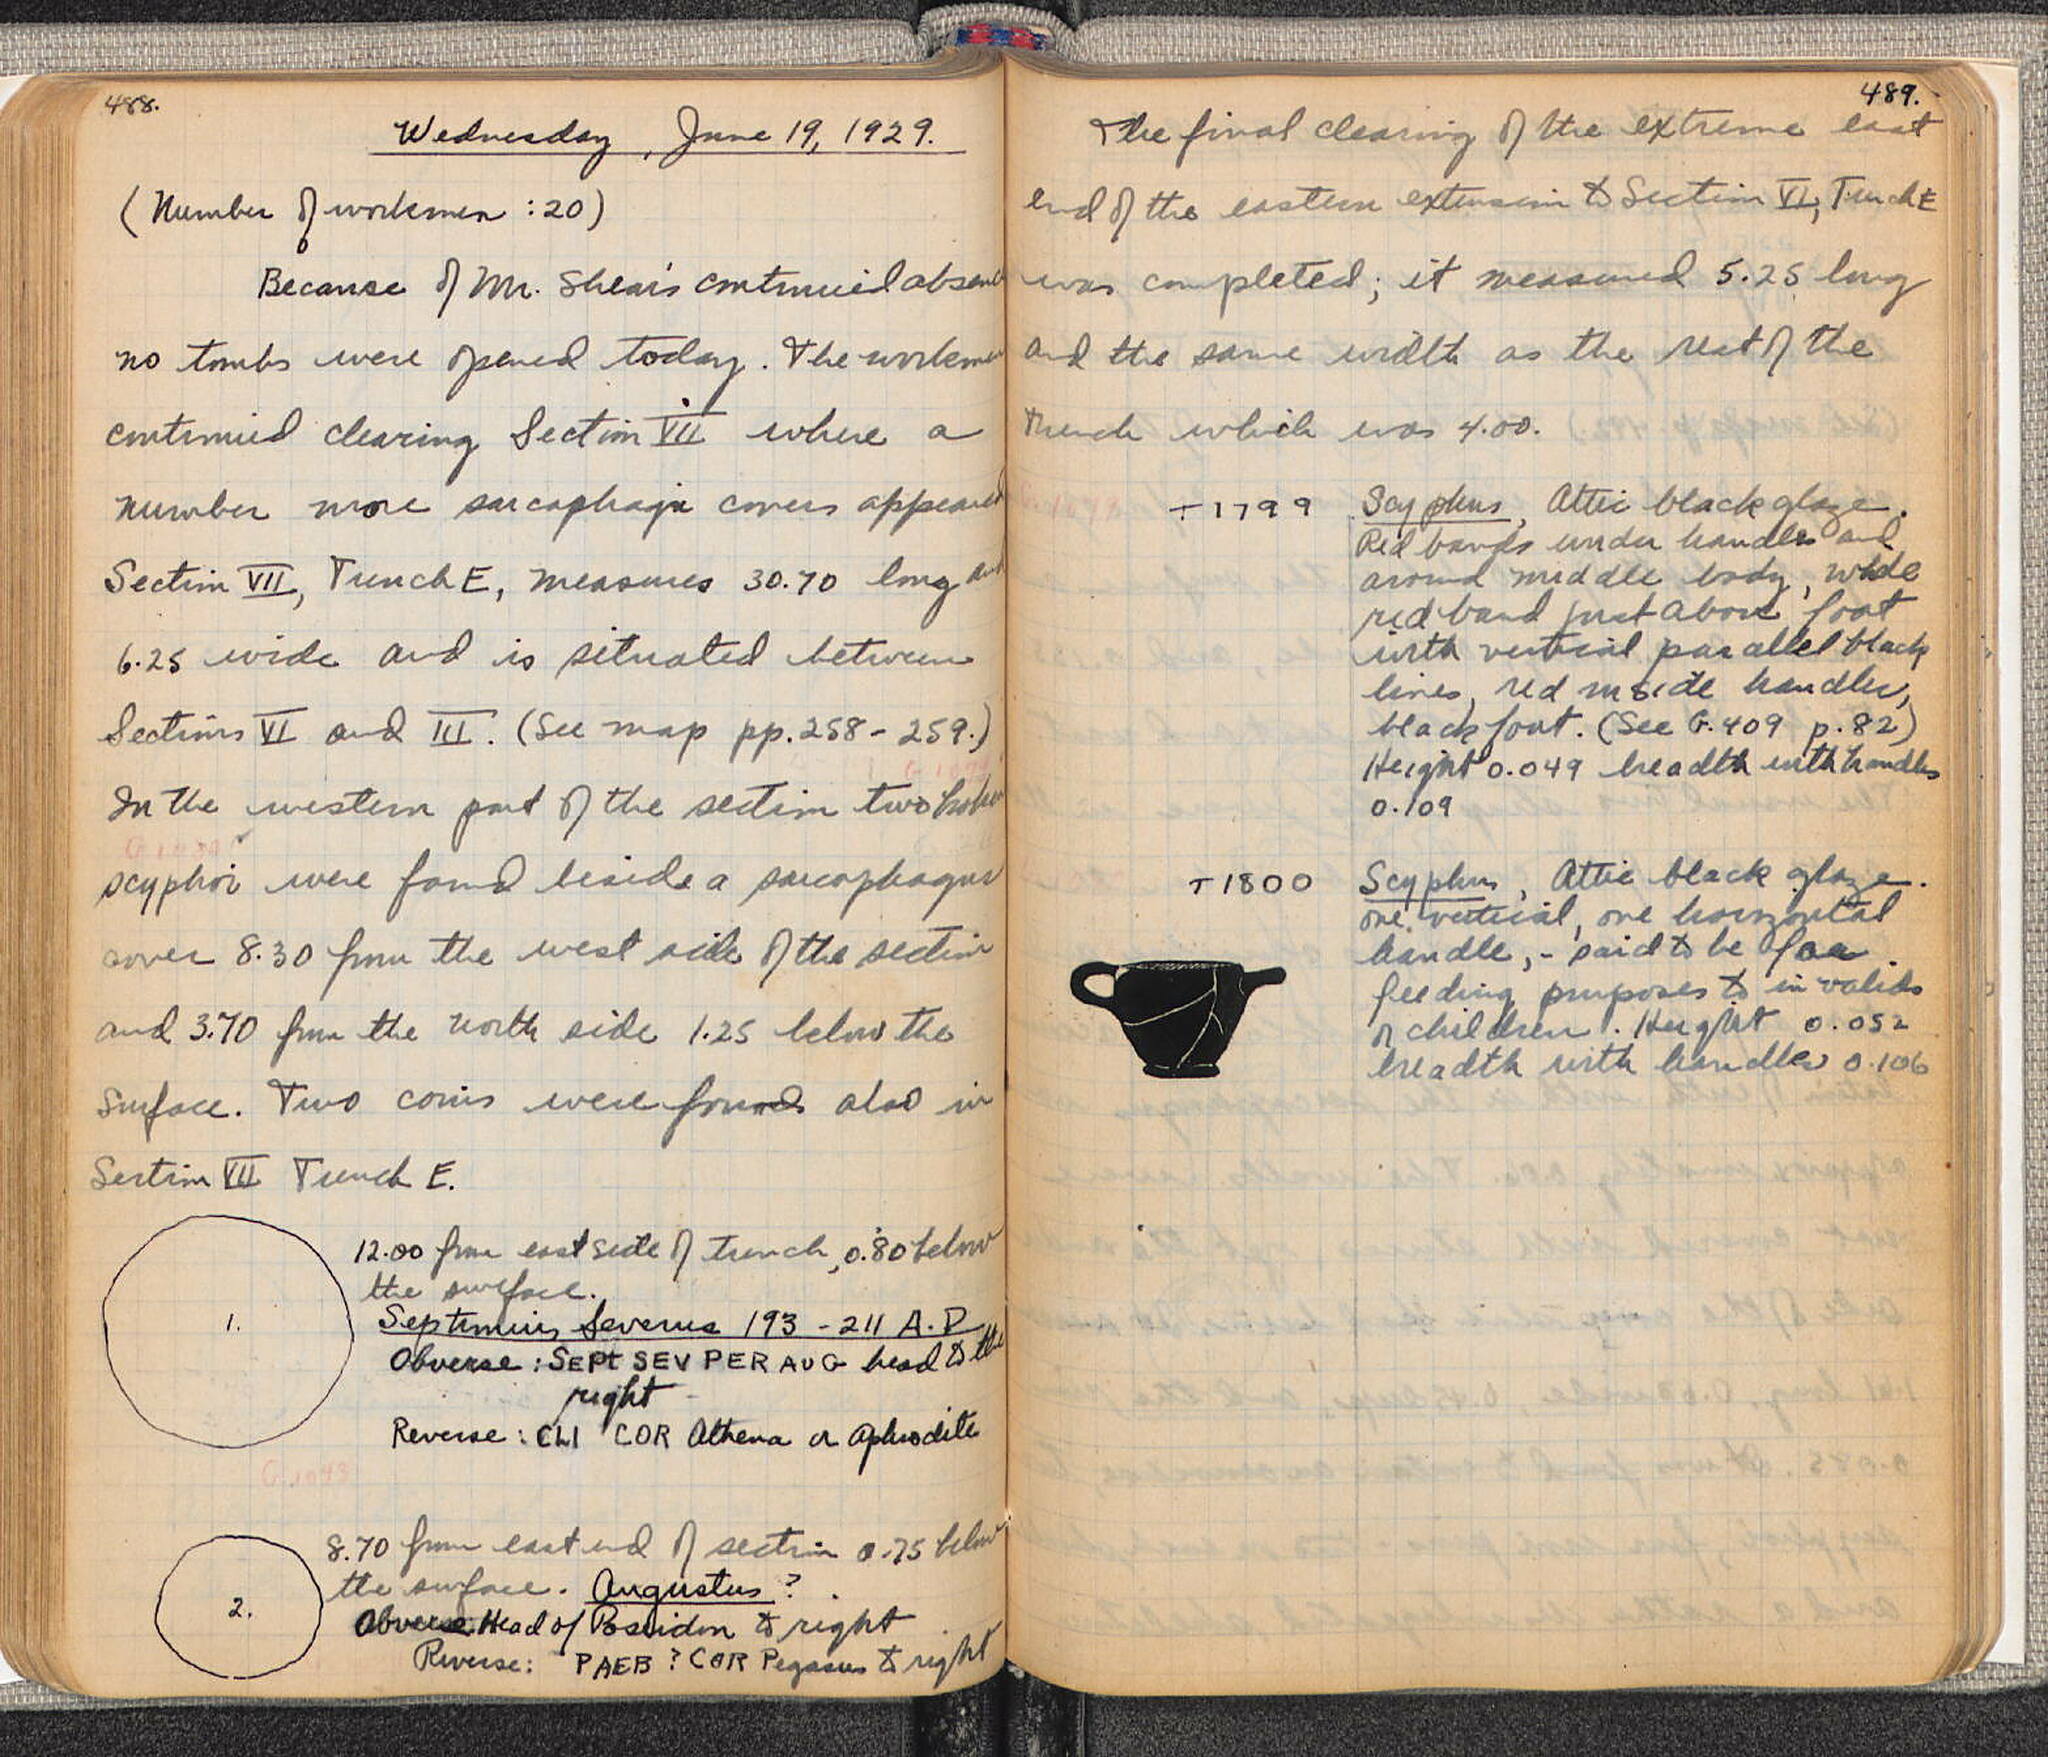 488.
Wednesday, June 19, 1929.
(Number of workmen : 20)
Because of Mr. Shear's continued absence
no tombs were opened today. The workmen
continued clearing Section VII where a
number more sarcophagi covers appeared
Section VII, Trench E, measures 30.70 long and
6.25 wide and is situated between
Sections VI and III. (See map pp. 258 - 259.)
In the western part of the section two broken
scyphoi were found beside a sarcophagus
cover 8.30 from the west side of the section
and 3.70 from the north side 1.25 below the
surface. Two coins were found also in
Section VII Trench E.
1.
12.00 from east side of trench, 0.80 below
the surface.
Septimius Severus 193 - 211 A.D
Obverse : SEPT SEV PER AUG head to the
right
Reverse : CLI COR Athena or Aphrodite
G.1043
2.
8.70 from east end of section 0.75 below
the surface. Augustus ?
Obverse Head of Poseidon to right
Reverse : PAEB ? COR Pegasus to right
489.
The final clearing of the extreme east
end of the eastern extension to Section VI, Trench E
was completed; it measured 5.25 long
and the same width as the rest of the
trench which was 4.00.
T1799 Scyphus, Attic black glaze.
Red bands under handles and
around middle body, wide
red band just above foot
with vertical parallel black
lines, red inside handles,
black foot. (See G.409 p. 82)
Height 0.049 breadth with handles
0.109
T1800 Scyphus, Attic black glaze.
one vertical, one horizontal
handle, - said to be for
feeding purposes to invalids
or children. Height 0.052
breadth with handles 0.106